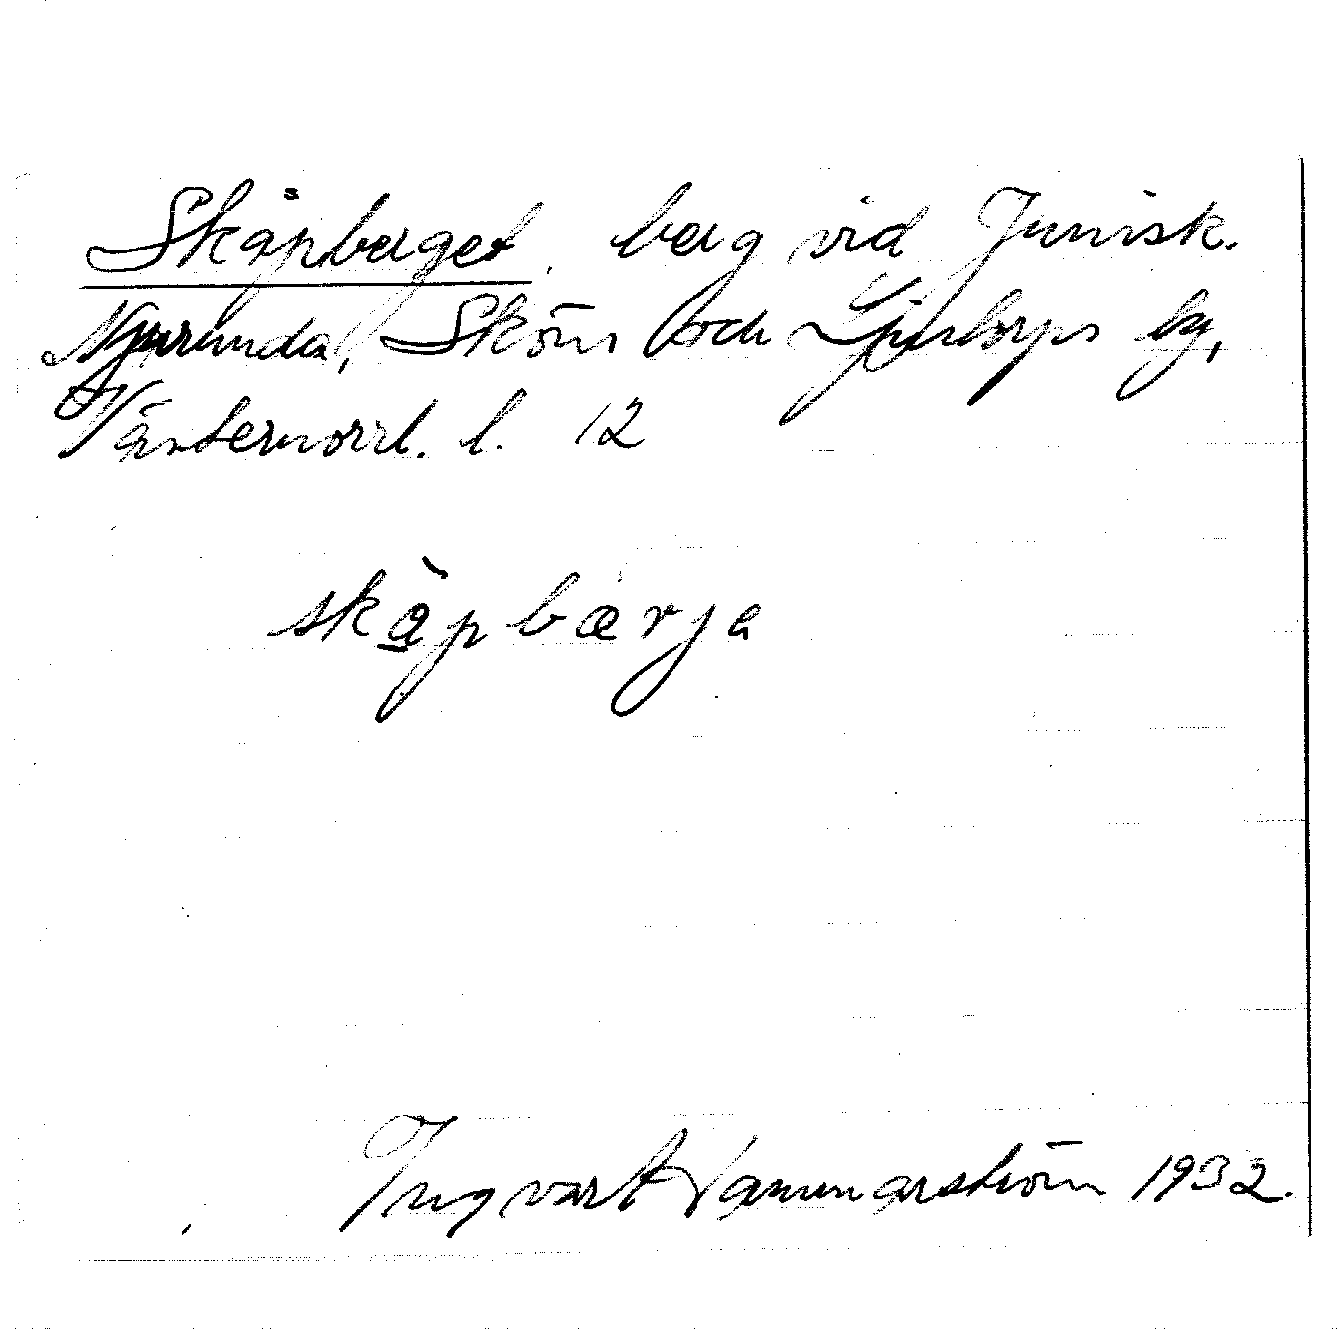 Skåpberget, berg vid Junisk.
Njurunda, Sköns och Ljustorps tg,
Västernorrl. l. 12
skåpbærja
Ingvart Hammarström 1932.